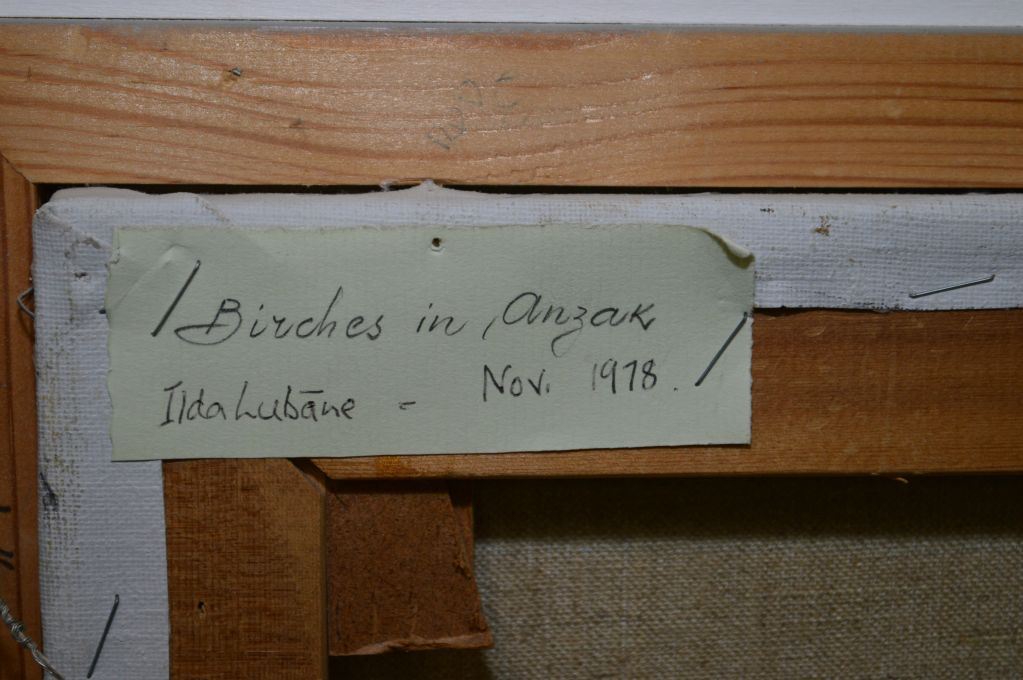 Birches in Anzak
Ilda Lubāne - Nov. 1978.